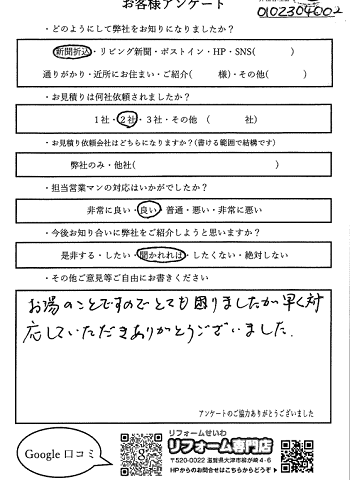 お客様アンケート
0102304002
・どのようにして弊社をお知りになりましたか？
新聞折込・リビング新聞・ポストイン・HP・SNS(　　　)
通りがかり・近所にお住まい・ご紹介(　　　様)・その他(　　　)
・お見積りは何社依頼されましたか？
1社・2社・3社・その他　(　　　社)
・お見積り依頼会社はどちらになりますか？(書ける範囲で結構です)
弊社のみ・他社(　　　)
・担当営業マンの対応はいかがでしたか？
非常に良い・良い・普通・悪い・非常に悪い
・今後お知り合いに弊社をご紹介しようと思いますか？
是非する・したい・聞かれれば・したくない・絶対しない
・その他ご意見等ご自由にお書きください
お湯のことですのでとても困りましたが早く対
応していただきありがとうございました.
アンケートのご協力ありがとうございました
Google口コミ
リフォームせいわ
リフォーム専門店
〒520-0022 滋賀県大津市柳が崎4-6
HPからのお問合せはこちらからどうぞ▶